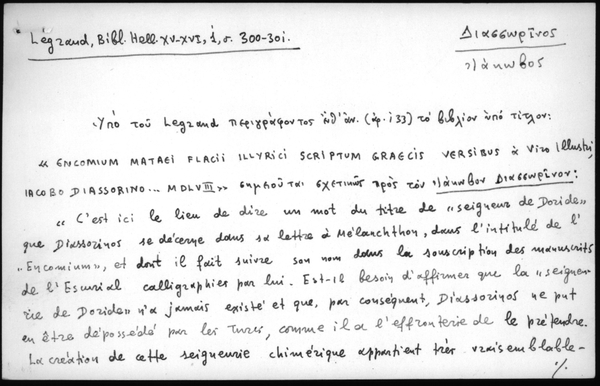 Légrand, Bibl. Hell. XV-XVI, 1, σ. 300-301.
Διασσωρῖνος
Ἰάκωβος
Ὑπό τοῦ Legrand περιγράφοντος ἐνθ' ἀν. (ἀρ. 133) τό βιβλίον ὑπό τίτλον:
« ENCOMIUM MATAEI FLACII ILLYRICI SCRIPTUM GRAECIS VERSIBUS à Viro Illustri,
IACOBO DIASSORINO... MDLVIII» σημειοῦται σχετικῶς πρός τόν Ἰάκωβον Διασσωρῖνον:
« C'est ici le lieu de dire un mot du titre de «seigneur de Doride»
que Diassorinos se décerne dans sa lettre à Mélanchthon, dans l'intitulé de l'
«Encomium», et dont il fait suivre son nom dans la souscription des manuscrits
de l'Escurial calligraphiés par lui. Est-il besoin d'affirmer que la «seigneu-
rie de Doride» n'a jamais existé et que, par conséquent, Diassorinos ne put
en être dépossédé par les Turcs, comme il a l'effronterie de le prétendre.
La création de cette seigneurie chimérique appartient très vraisemblable-
./.